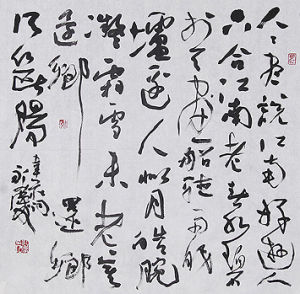 人人盡說江南好遊人
只合江南老春水碧
於天畫船聽雨眠
壚邊人似月皓腕
凝霜雪未老莫
還鄉還鄉
須斷腸
韋莊詞